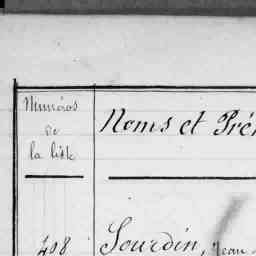 Numéros
de
la liste
Noms et Pré
408
Sourdin, Jean